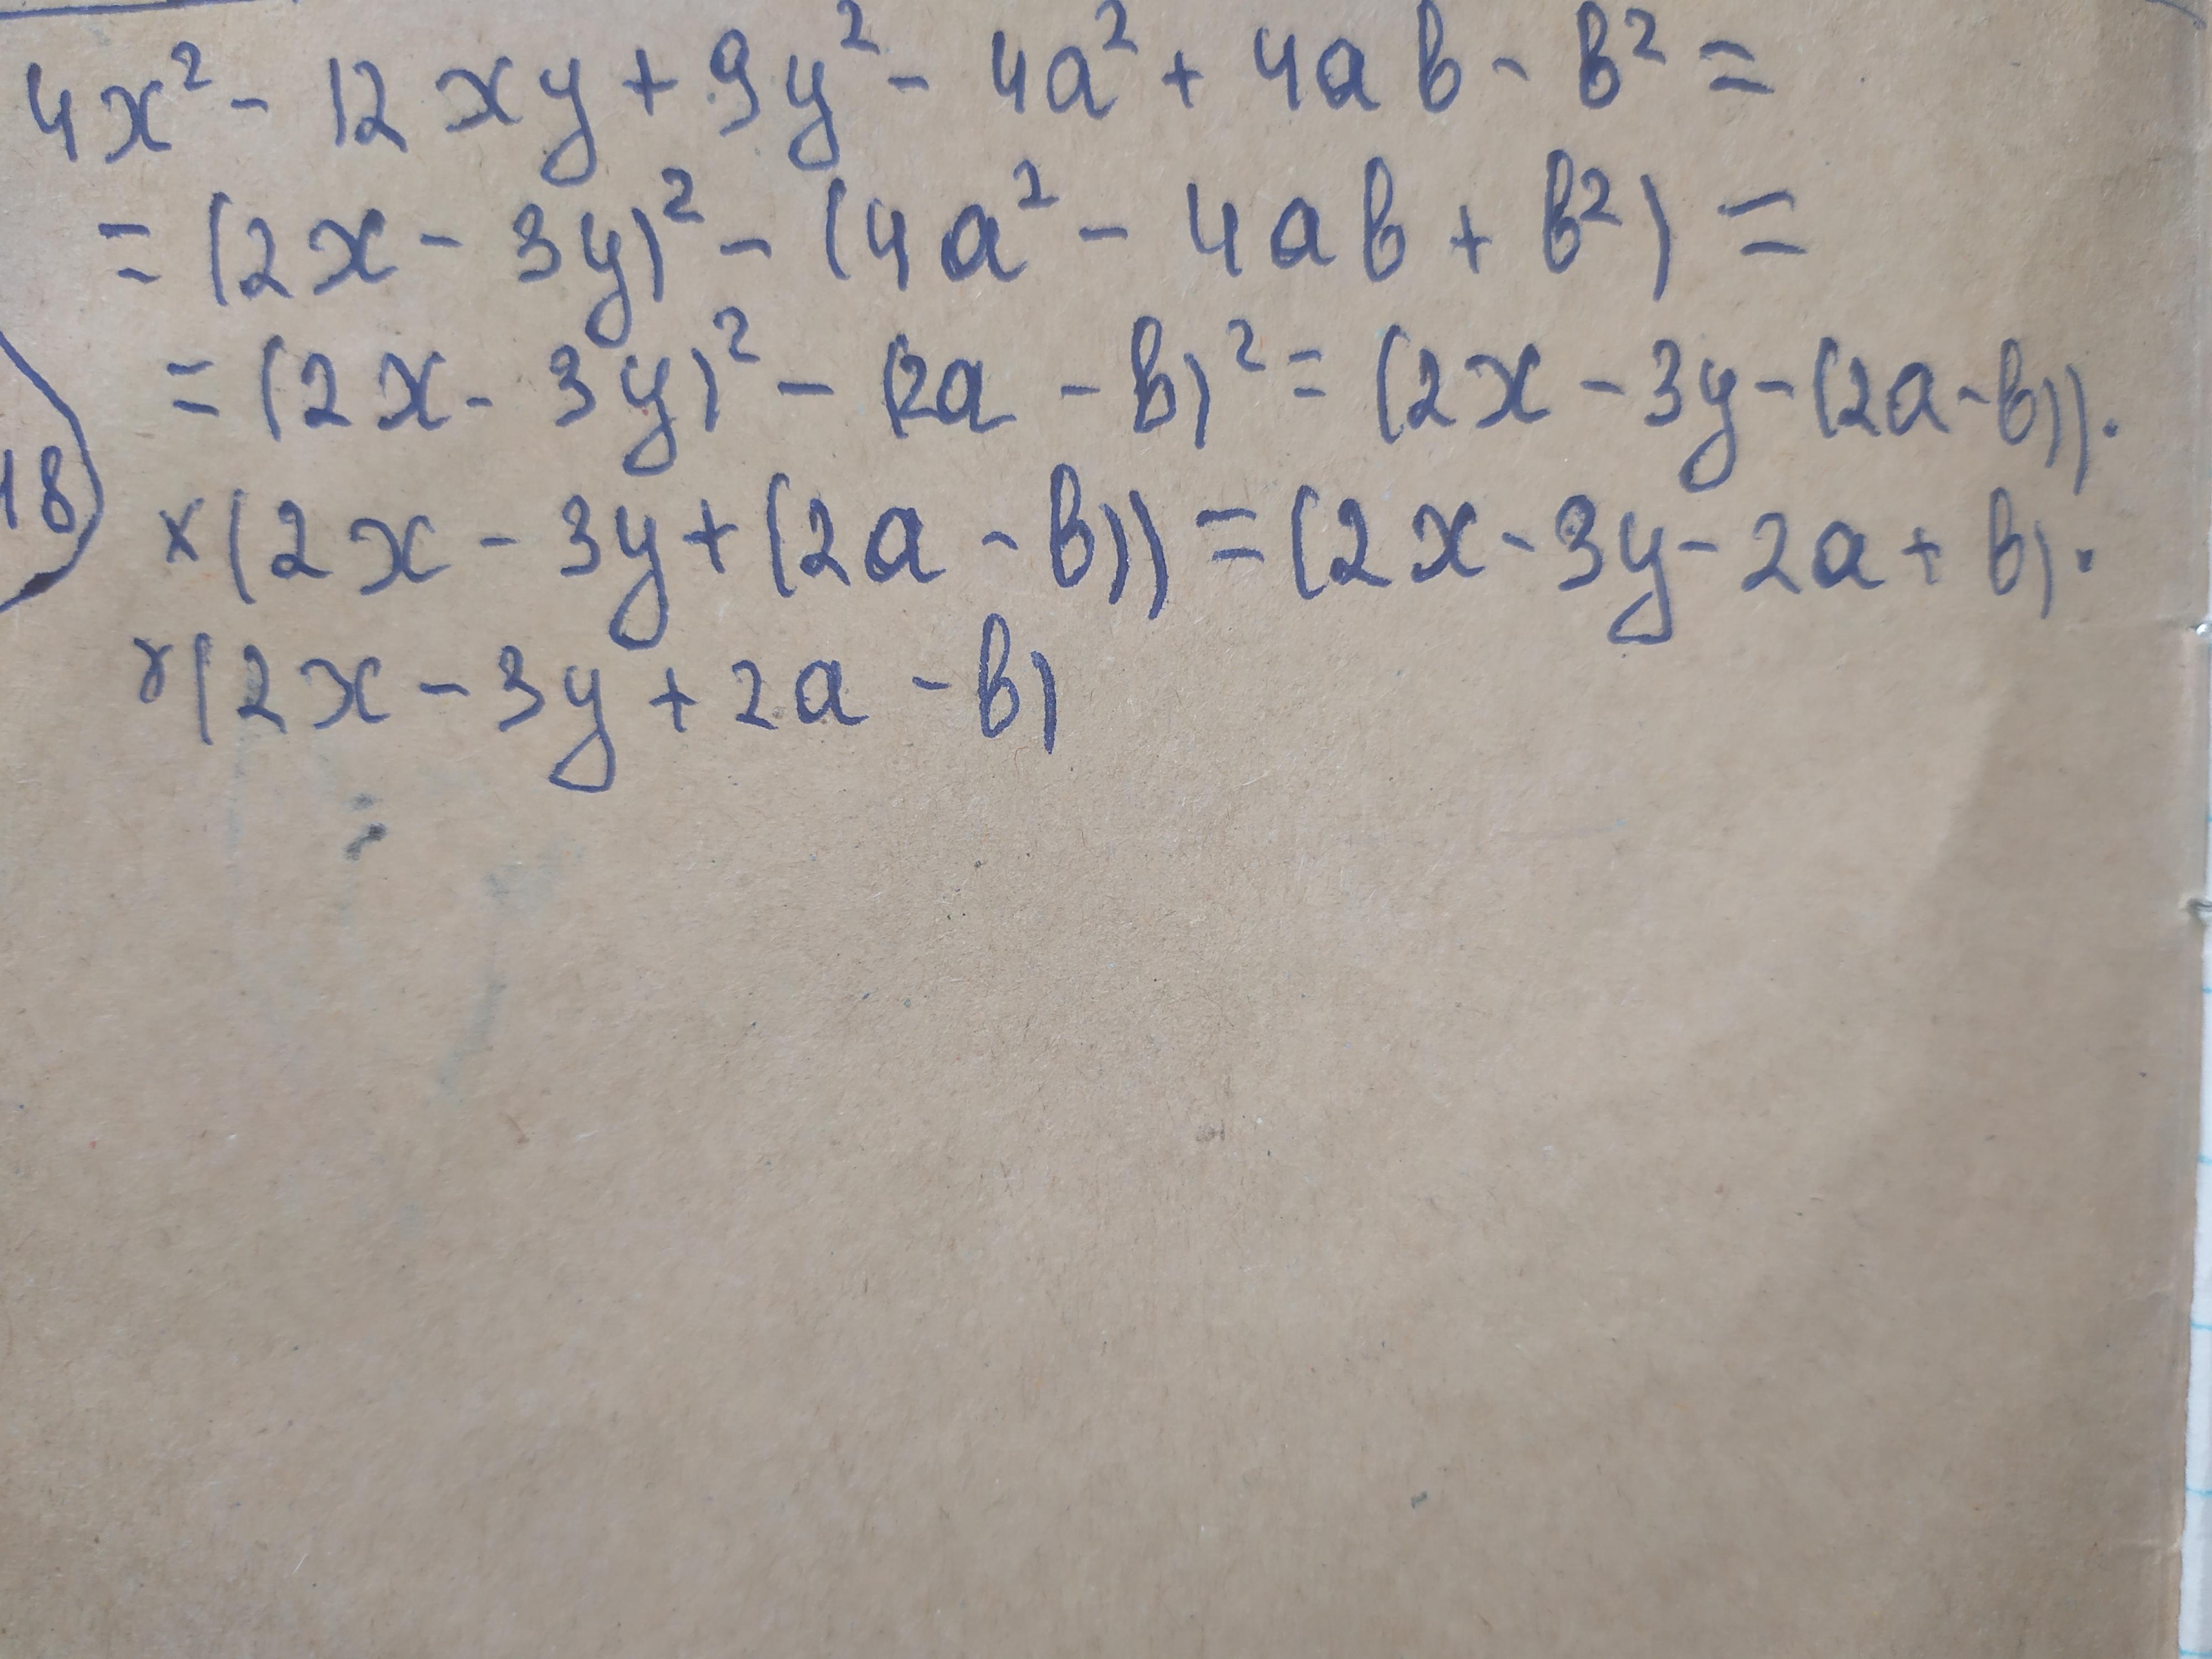 4x² - 12xy + 9y² - 4a² + 4ab - b² =
= (2x - 3y)² - (4a² - 4ab + b²) =
= (2x - 3y)² - (2a - b)² = (2x - 3y - (2a - b)) ·
18
× (2x - 3y + (2a - b)) = (2x - 3y - 2a + b) ·
× (2x - 3y + 2a - b)